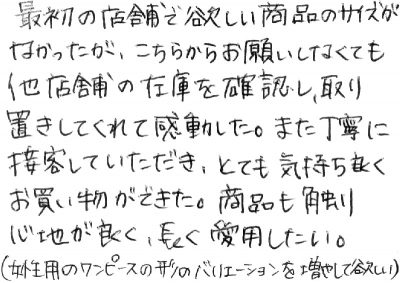 最初の店舗で欲しい商品のサイズが
なかったが、こちらからお願いしなくても
他店舗の在庫を確認し、取り
置きしてくれて感動した。また丁寧に
接客していただき、とても気持ち良く
お買い物ができた。商品も触り
心地が良く、長く愛用したい。
(女性用のワンピースの形のバリエーションを増やして欲しい)